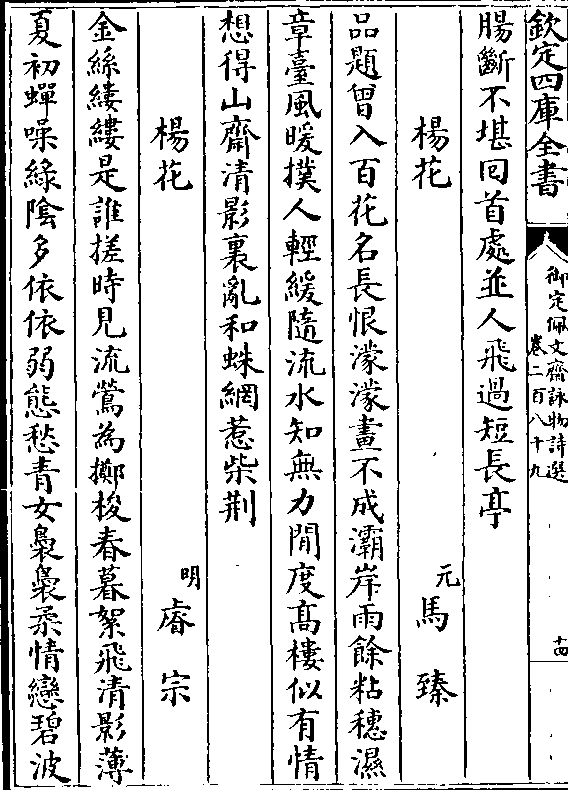 欽定四庫全書
御定佩文齋詠物詩選
卷二百八十九
十四
腸斷不堪回首處並人飛過短長亭
楊花
元馬臻
品題曾入百花名長恨濛濛畫不成灞岸雨餘粘穗濕
章臺風暖撲人輕緩隨流水知無力閒度髙樓似有情
想得山齋清影裏亂和蛛網惹柴荆
楊花
明睿宗
金絲縷縷是誰搓時見流鶯為擲梭春暮絮飛清影薄
夏初蟬噪綠陰多依依弱態愁青女裊裊柔情戀碧波